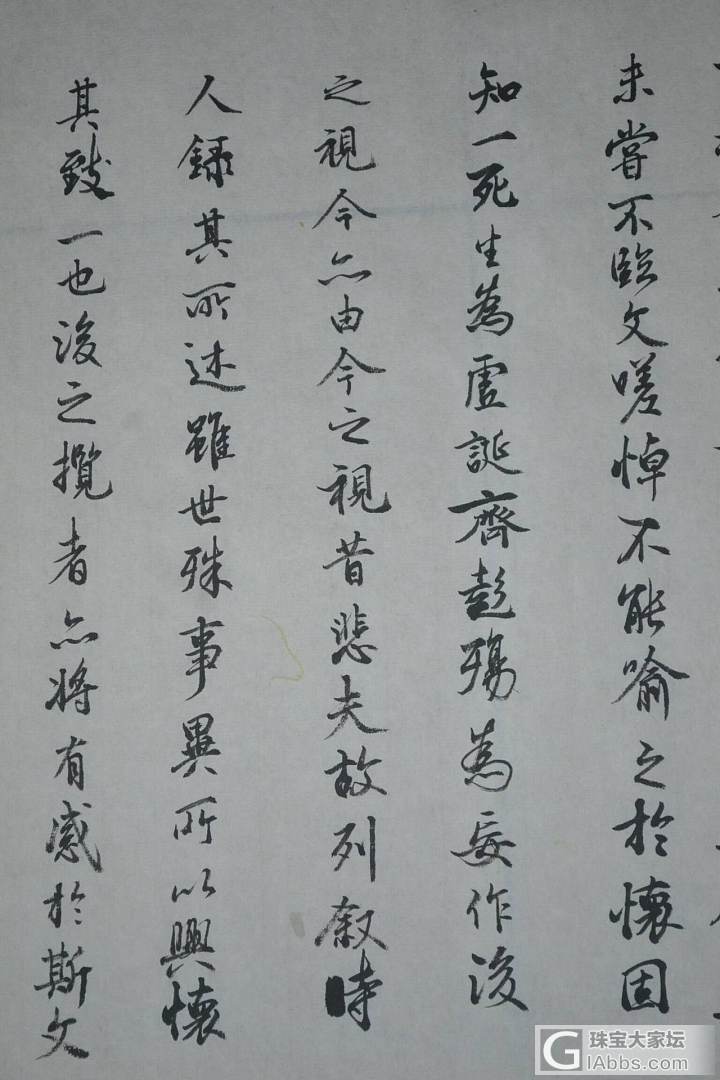 未嘗不臨文嗟悼不能喻之於懷固
知一死生為虛誕齊彭殤為妄作後
之視今亦由今之視昔悲夫故列叙時
人錄其所述雖世殊事異所以興懷
其致一也後之攬者亦將有感於斯文
珠宝大家坛
lAbbs.com